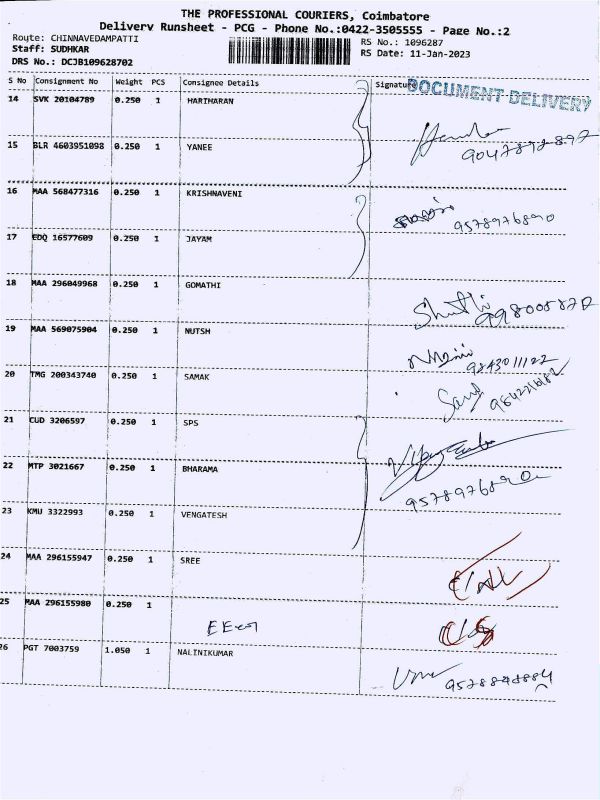 THE PROFESSIONAL COURIERS, Coimbatore
Delivery Runsheet - PCG - Phone No.:0422-3505555 - Page No.:2
Route: CHINNAVEDAMPATTI
RS No.: 1096287
Staff: SUDHKAR
RS Date: 11-Jan-2023
DRS No.: DCJB109628702
S No Consignment No Weight PCS Consignee Details Signature
DOCUMENT DELIVERY
14 SVK 20104789 0.250 1 HARIHARAN
15 BLR 4603951098 0.250 1 YANEE
16 MAA 568477316 0.250 1 KRISHNAVENI
9578976890
17 EDQ 16577609 0.250 1 JAYAM
18 MAA 296049968 0.250 1 GOMATHI
19 MAA 569075904 0.250 1 NUTSH
9843011122
20 TMG 200343740 0.250 1 SAMAK
21 CUD 3206597 0.250 1 SPS
22 MTP 3021667 0.250 1 BHARAMA
9578976890
23 KMU 3322993 0.250 1 VENGATESH
24 MAA 296155947 0.250 1 SREE
25 MAA 296155980 0.250 1
26 PGT 7003759 1.050 1 NALINIKUMAR